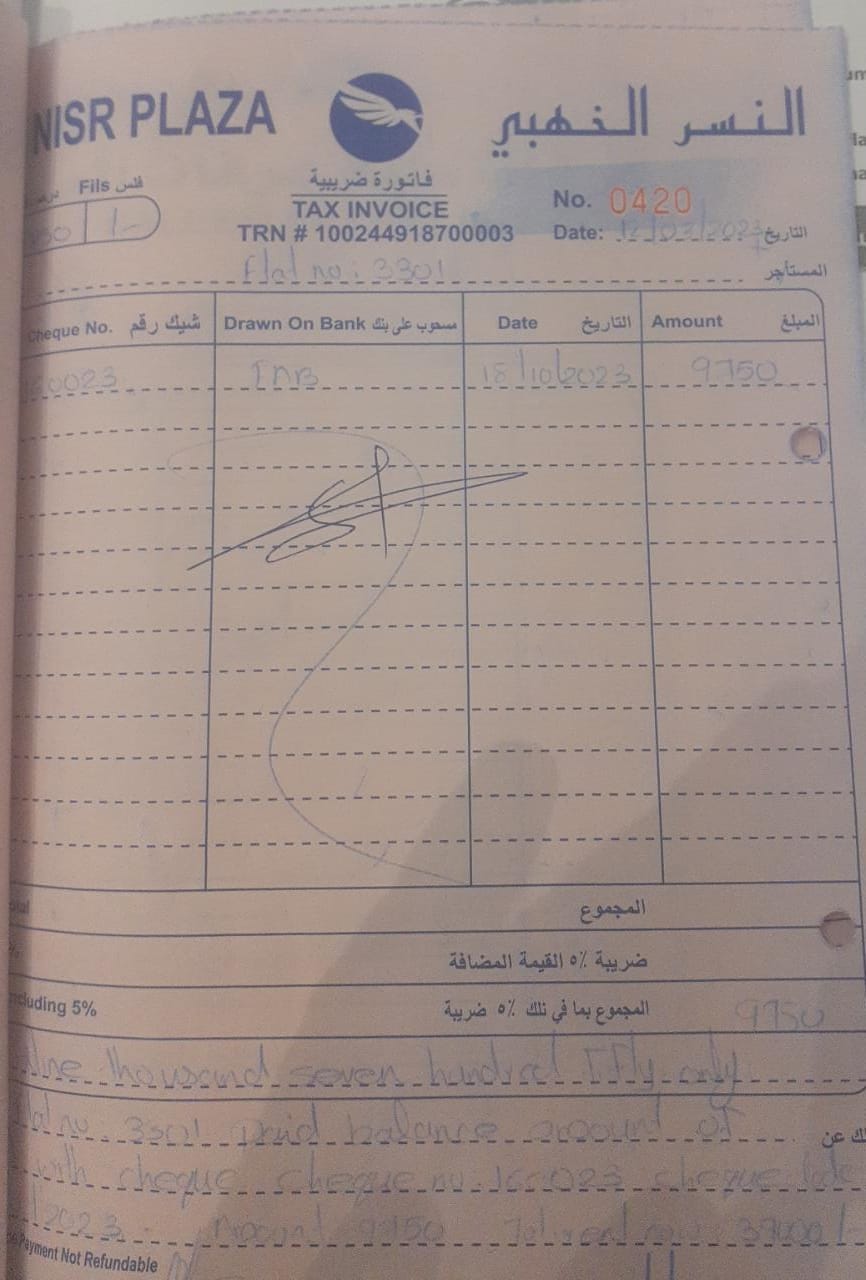 NISR PLAZA
النسر الذهبي
Fils فلس
فاتورة ضريبية
TAX INVOICE
No. 0420
TRN # 100244918700003
Date: 12/03/2023 التاريخ
Flat no: 3301 المستأجر
Cheque No. شيك رقم Drawn On Bank مسحوب على بنك Date التاريخ Amount المبلغ
160023 18/10/2023 9750
المجموع
ضريبة ٥٪ القيمة المضافة
cluding 5% المجموع بما في ذلك ٥٪ ضريبة 9750
Nine thousand seven hundred Fifty only
no: 3301 paid balance amount of
with cheque cheque no. 160023 cheque
2023 Amount 9750 39000/-
Payment Not Refundable